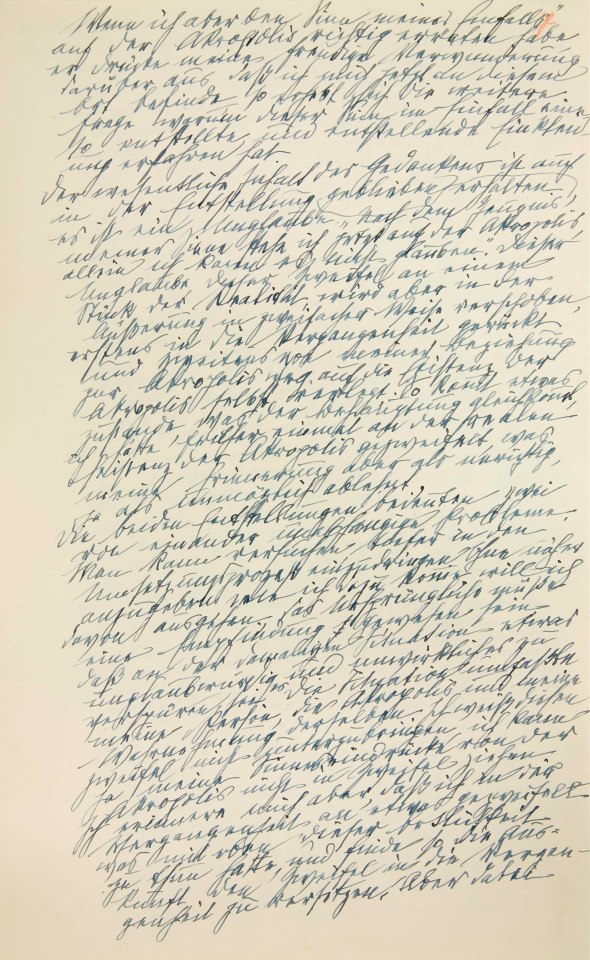 7
Wenn ich aber den Sinn meines Einfalls
auf der Akropolis richtig erraten habe
er drücke meine freudige Verwunderung
darüber aus, daß ich mich jetzt an diesem
Ort befinde, so erhebt sich die weitere
Frage warum dieser Sinn im Einfall eine
so entstellte und entstellende Einkleid
ung erfahren hat
Der wesentliche Inhalt des Gedankens ist auch
in der Entstellung geblieben erhalten
es ist ein Unglaube „Nach dem Zeugnis
meiner Sinne stehe ich jetzt auf der Akropolis,
allein ich kann es nicht glauben." Dieser
Unglaube dieser Zweifel an einem
Stück der Realität, wird aber in der
Äußerung in zweifacher Weise verschoben,
erstens in die Vergangenheit gerückt
und zweitens von meiner Beziehung
zur Akropolis weg auf die Existenz der
Akropolis selbst verlegt. So kommt etwas
zustande was der Behauptung gleichkommt,
ich hätte früher einmal an der realen
Existenz der Akropolis gezweifelt, was
meine Erinnerung aber als unrichtig,
ja als unmöglich ablehnt
Die beiden Entstellungen bedeuten zwei
von einander unabhängige Probleme.
Man kann versuchen tiefer in den
Umsetzungsprozeß einzudringen. Ohne näher
anzugeben wie ich dazu komme will ich
davon ausgehen, das Ursprüngliche müsse
eine Empfindung gewesen sein
daß an der damaligen Situation etwas
unglaubwürdig und unwirkliches zu
verspüren sei. Die Situation umfaßte
meine Person, die Akropolis und meine
Wahrnehmung derselben. Ich weiß diesen
Zweifel nicht unterzubringen, ich kann
ja meine Sinneseindrücke von der
Akropolis nicht in Zweifel ziehen
Ich erinnere mich aber, daß ich in der
Vergangenheit an etwas gezweifelt
was mit eben dieser Örtlichkeit
zu thun hatte, und finde so die Aus-
kunft den Zweifel in die Vergan-
genheit zu versetzen. Aber dabei